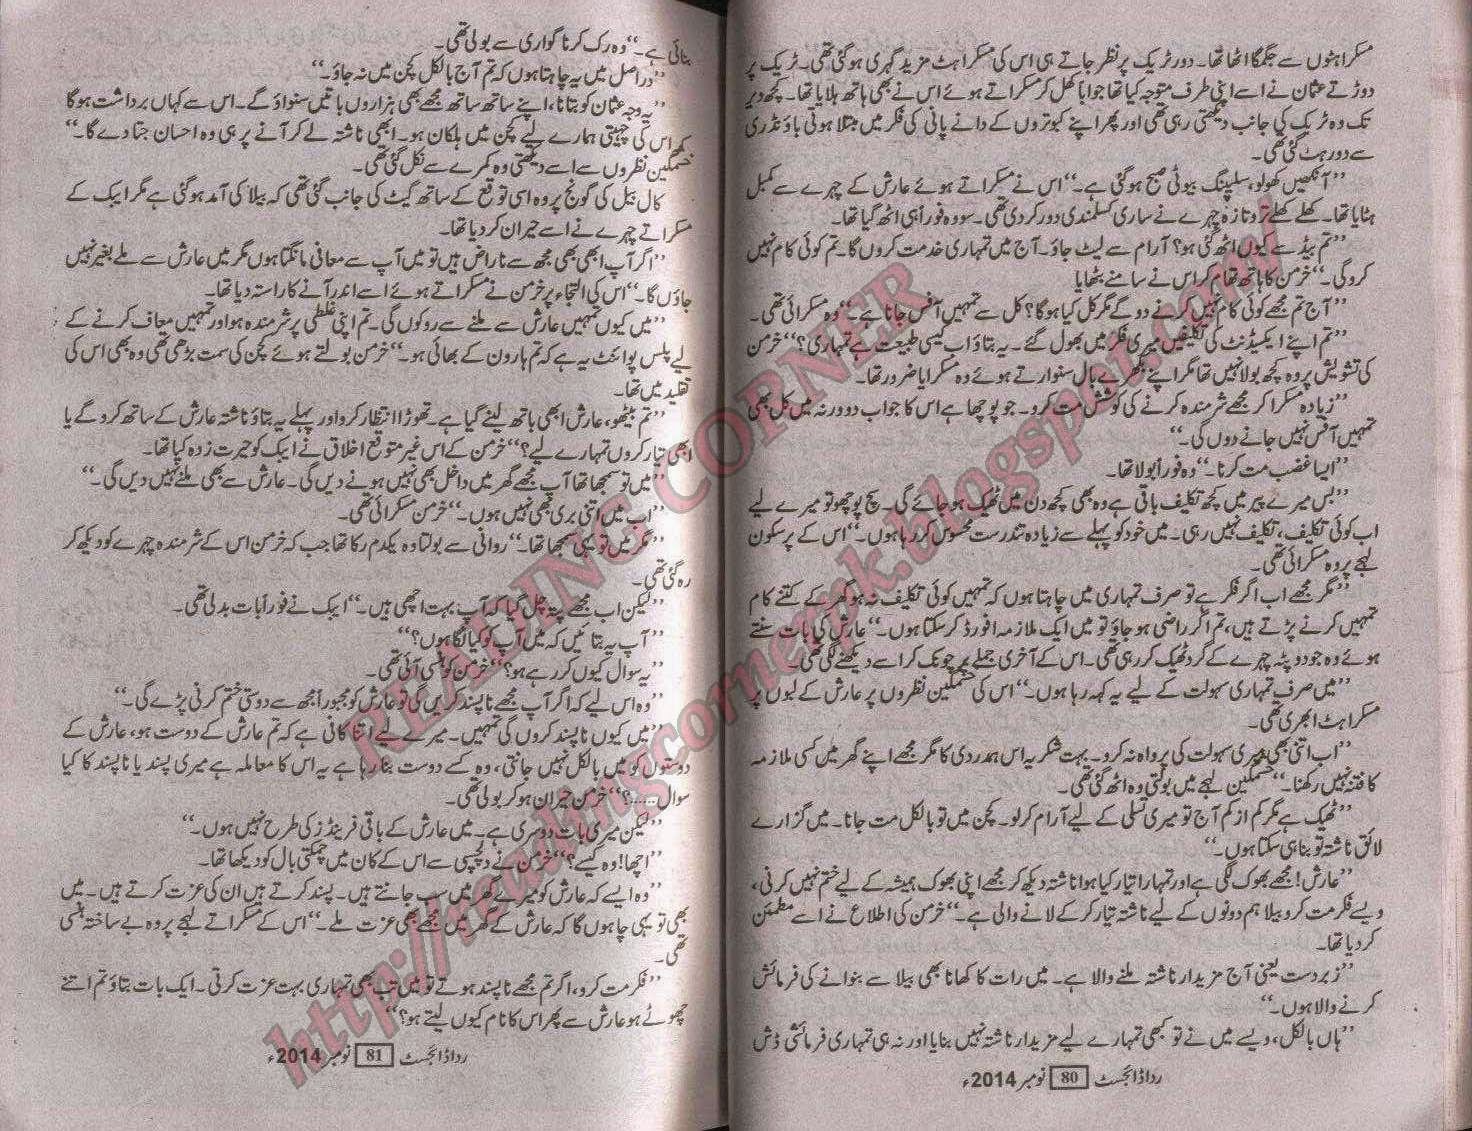 مسکراہٹوں سے جگمگا اٹھا تھا۔ دور ٹریک پر نظر جاتے ہی اس کی مسکراہٹ مزید گہری ہو گئی تھی۔ ٹریک پر
دوڑتے عثمان نے اسے اپنی طرف متوجہ کیا تھا جواباً کھل کر مسکراتے ہوئے اس نے بھی ہاتھ ہلایا تھا۔ کچھ دیر
تک وہ ٹریک کی جانب دیکھتی رہی تھی اور پھر اپنے کبوتروں کے دانے پانی کی فکر میں مبتلا ہوتی باؤنڈری
سے دور ہٹ گئی تھی۔
’’آنکھیں کھولو، سلیپنگ بیوٹی صبح ہو گئی ہے۔‘‘ اس نے مسکراتے ہوئے عارش کے چہرے سے کمبل
ہٹایا تھا۔ کھلے کھلے تروتازہ چہرے نے ساری کسلمندی دور کر دی تھی۔ سو وہ فوراً ہی اٹھ گیا تھا۔
’’تم بیڈ سے کیوں اٹھ گئی ہو؟ آرام سے لیٹ جاؤ۔ آج میں تمہاری خدمت کروں گا۔ تم کوئی کام نہیں
کرو گی۔‘‘ خرمن کا ہاتھ تھام کر اس نے سامنے بٹھایا
’’آج تم مجھے کوئی کام نہیں کرنے دو گے مگر کل کیا ہوگا؟ کل سے تمہیں آفس جانا ہے۔‘‘ وہ مسکرائی تھی۔
’’تم اپنے ایکسیڈنٹ کی تکلیفیں میری فکر میں بھول گئے۔ یہ بتاؤ اب کیسی طبیعت ہے تمہاری؟‘‘ خرمن
کی تشویش پر وہ کچھ بولا نہیں تھا مگر اپنے بکھرے بال سنوارتے ہوئے وہ مسکرایا ضرور تھا۔
’’زیادہ مسکرا کر مجھے شرمندہ کرنے کی کوشش مت کرو۔ جو پوچھا ہے اس کا جواب دو ورنہ میں کل بھی
تمہیں آفس نہیں جانے دوں گی۔‘‘
’’ایسا غضب مت کرنا۔‘‘ وہ فوراً بولا تھا۔
’’بس میرے پیر میں کچھ تکلیف باقی ہے وہ بھی کچھ دن میں ٹھیک ہو جائے گی۔ سچ پوچھو تو میرے لیے
اب کوئی تکلیف، تکلیف نہیں رہی۔ میں خود کو پہلے سے زیادہ تندرست محسوس کر رہا ہوں۔‘‘ اس کے پرسکون
لہجے پر وہ مسکرائی تھی۔
’’مگر مجھے اب اگر فکر ہے تو صرف تمہاری میں چاہتا ہوں کہ تمہیں کوئی تکلیف نہ ہو گھر کے کتنے کام
تمہیں کرنے پڑتے ہیں، تم اگر راضی ہو جاؤ تو میں ایک ملازمہ افورڈ کر سکتا ہوں۔‘‘ عارش کی بات سنتے
ہوئے وہ جو دوپٹہ چہرے کے گرد ٹھیک کر رہی تھی۔ اس کے آخری جملے پر چونک کر اسے دیکھنے لگی تھی۔
’’میں صرف تمہاری سہولت کے لیے یہ کہہ رہا ہوں۔‘‘ اس کی خشمگین نظروں پر عارش کے لبوں پر
مسکراہٹ ابھری تھی۔
’’اب اتنی بھی میری سہولت کی پرواہ نہ کرو۔ بہت شکریہ اس ہمدردی کا مگر مجھے اپنے گھر میں کسی ملازمہ
کا فتنہ نہیں رکھنا۔‘‘ خشمگین لہجے میں بولتی وہ اٹھ گئی تھی۔
’’ٹھیک ہے مگر کم از کم آج تو میری تسلی کے لیے آرام کر لو۔ کچن میں تو بالکل مت جانا۔ میں گزارے
لائق ناشتہ تو بنا ہی سکتا ہوں۔‘‘
’’عارش! مجھے بھوک لگی ہے اور تمہارا تیار کیا ہوا ناشتہ دیکھ کر مجھے اپنی بھوک ہمیشہ کے لیے ختم نہیں کرنی،
ویسے فکر مت کرو بیلا ہم دونوں کے لیے ناشتہ تیار کر کے لانے والی ہے۔‘‘ خرمن کی اطلاع نے اسے مطمئن
کر دیا تھا۔
’’زبردست یعنی آج مزیدار ناشتہ ملنے والا ہے۔ میں رات کا کھانا بھی بیلا سے بنوانے کی فرمائش
کرنے والا ہوں۔‘‘
’’ہاں بالکل، ویسے میں نے تو کبھی تمہارے لیے مزیدار ناشتہ نہیں بنایا اور نہ ہی تمہاری فرمائشی ڈش
ردا ڈائجسٹ 80 نومبر 2014ء
بنائی ہے۔‘‘ وہ رک کر ناگواری سے بولی تھی۔
’’دراصل میں یہ چاہتا ہوں کہ تم آج بالکل کچن میں نہ جاؤ۔‘‘
’’یہ وجہ عثمان کو بتانا، اپنے ساتھ ساتھ مجھے بھی ہزاروں باتیں سنواؤ گے۔ اس سے کہاں برداشت ہوگا
کہ اس کی چہیتی ہمارے لیے کچن میں ہلکان ہو۔ ابھی ناشتہ لے کر آنے پر ہی وہ احسان جتا دے گا۔‘‘
خشمگین نظروں سے اسے دیکھتی وہ کمرے سے نکل گئی تھی۔
کال بیل کی گونج پر وہ اسی توقع کے ساتھ گیٹ کی جانب گئی تھی کہ بیلا کی آمد ہو گئی ہے مگر ایبک کے
مسکراتے چہرے نے اسے حیران کر دیا تھا۔
’’اگر آپ ابھی بھی مجھ سے ناراض ہیں تو میں آپ سے معافی مانگتا ہوں مگر میں عارش سے ملے بغیر نہیں
جاؤں گا۔‘‘ اس کی التجاء پر خرمن نے مسکراتے ہوئے اسے اندر آنے کا راستہ دیا تھا۔
’’میں کیوں تمہیں عارش سے ملنے سے روکوں گی۔ تم اپنی غلطی پر شرمندہ ہو اور تمہیں معاف کرنے کے
لیے پلس پوائنٹ یہ ہے کہ تم ہارون کے بھائی ہو۔‘‘ خرمن بولتے ہوئے کچن کی سمت بڑھی تھی وہ بھی اس کی
تقلید میں تھا۔
’’تم بیٹھو، عارش ابھی باتھ لینے گیا ہے۔ تھوڑا انتظار کرو اور پہلے یہ بتاؤ ناشتہ عارش کے ساتھ کرو گے یا
ابھی تیار کروں تمہارے لیے؟‘‘ خرمن کے اس غیر متوقع اخلاق نے ایبک کو حیرت زدہ کیا تھا۔
’’میں تو سمجھا تھا آپ مجھے گھر میں داخل بھی نہیں ہونے دیں گی۔ عارش سے بھی ملنے نہیں دیں گی۔‘‘
’’اب میں اتنی بری بھی نہیں ہوں۔‘‘ خرمن مسکرائی تھی۔
’’مگر میں تو یہی سمجھا تھا۔‘‘ روانی سے بولتا وہ یکدم رکا تھا جب کہ خرمن اس کے شرمندہ چہرے کو دیکھ کر
رہ گئی تھی۔
’’لیکن اب مجھے پتہ چل گیا کہ آپ بہت اچھی ہیں۔‘‘ ایبک نے فوراً بات بدلی تھی۔
’’آپ یہ بتائیں کہ میں آپ کو کیا لگا ہوں؟‘‘
’’یہ سوال کیوں کر رہے ہو؟‘‘ خرمن کو ہنسی آئی تھی۔
’’وہ اس لیے کہ اگر آپ مجھے ناپسند کریں گی تو عارش کو مجبوراً مجھ سے دوستی ختم کرنی پڑے گی۔‘‘
’’میں کیوں ناپسند کروں گی تمہیں۔ میرے لیے اتنا کافی ہے کہ تم عارش کے دوست ہو، عارش کے
دوستوں کو میں بالکل نہیں جانتی، وہ کسے دوست بنا رہا ہے یہ اس کا معاملہ ہے میری پسند یا ناپسند کا کیا
سوال.....؟‘‘ خرمن حیران ہو کر بولی تھی۔
’’لیکن میری بات دوسری ہے۔ میں عارش کے باقی فرینڈز کی طرح نہیں ہوں۔‘‘
’’اچھا! وہ کیسے؟‘‘ خرمن نے دلچسپی سے اس کے کان میں چمکتی بالی کو دیکھا تھا۔
’’وہ ایسے کہ عارش کو میرے گھر میں سب جانتے ہیں۔ پسند کرتے ہیں ان کی عزت کرتے ہیں۔ میں
بھی تو یہی چاہوں گا کہ عارش کے گھر میں مجھے بھی عزت ملے۔‘‘ اس کے مسکراتے لہجے پر وہ بے ساختہ ہنسی
تھی۔
’’فکر مت کرو، اگر تم مجھے ناپسند ہوتے تو میں تب بھی تمہاری بہت عزت کرتی۔ ایک بات بتاؤ تم اتنے
چھوٹے ہو عارش سے پھر اس کا نام کیوں لیتے ہو؟‘‘
ردا ڈائجسٹ 81 نومبر 2014ء
READING CORNER
http://readingcornerpk.blogspot.com/